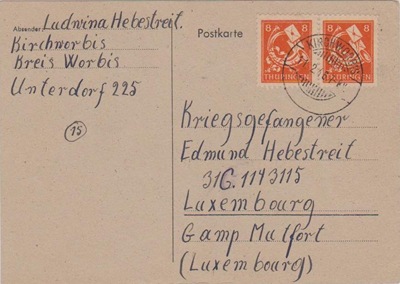 Absender Ludwina Hebestreit.
Kirchworbis
Kreis Worbis
Unterdorf 225
15
Postkarte
8 8
THÜRINGEN
8 8
THÜRINGEN
Kriegsgefangener
Edmund Hebestreit
31G. 1143115
Luxembourg
Gamp Mutfort
(Luxembourg)